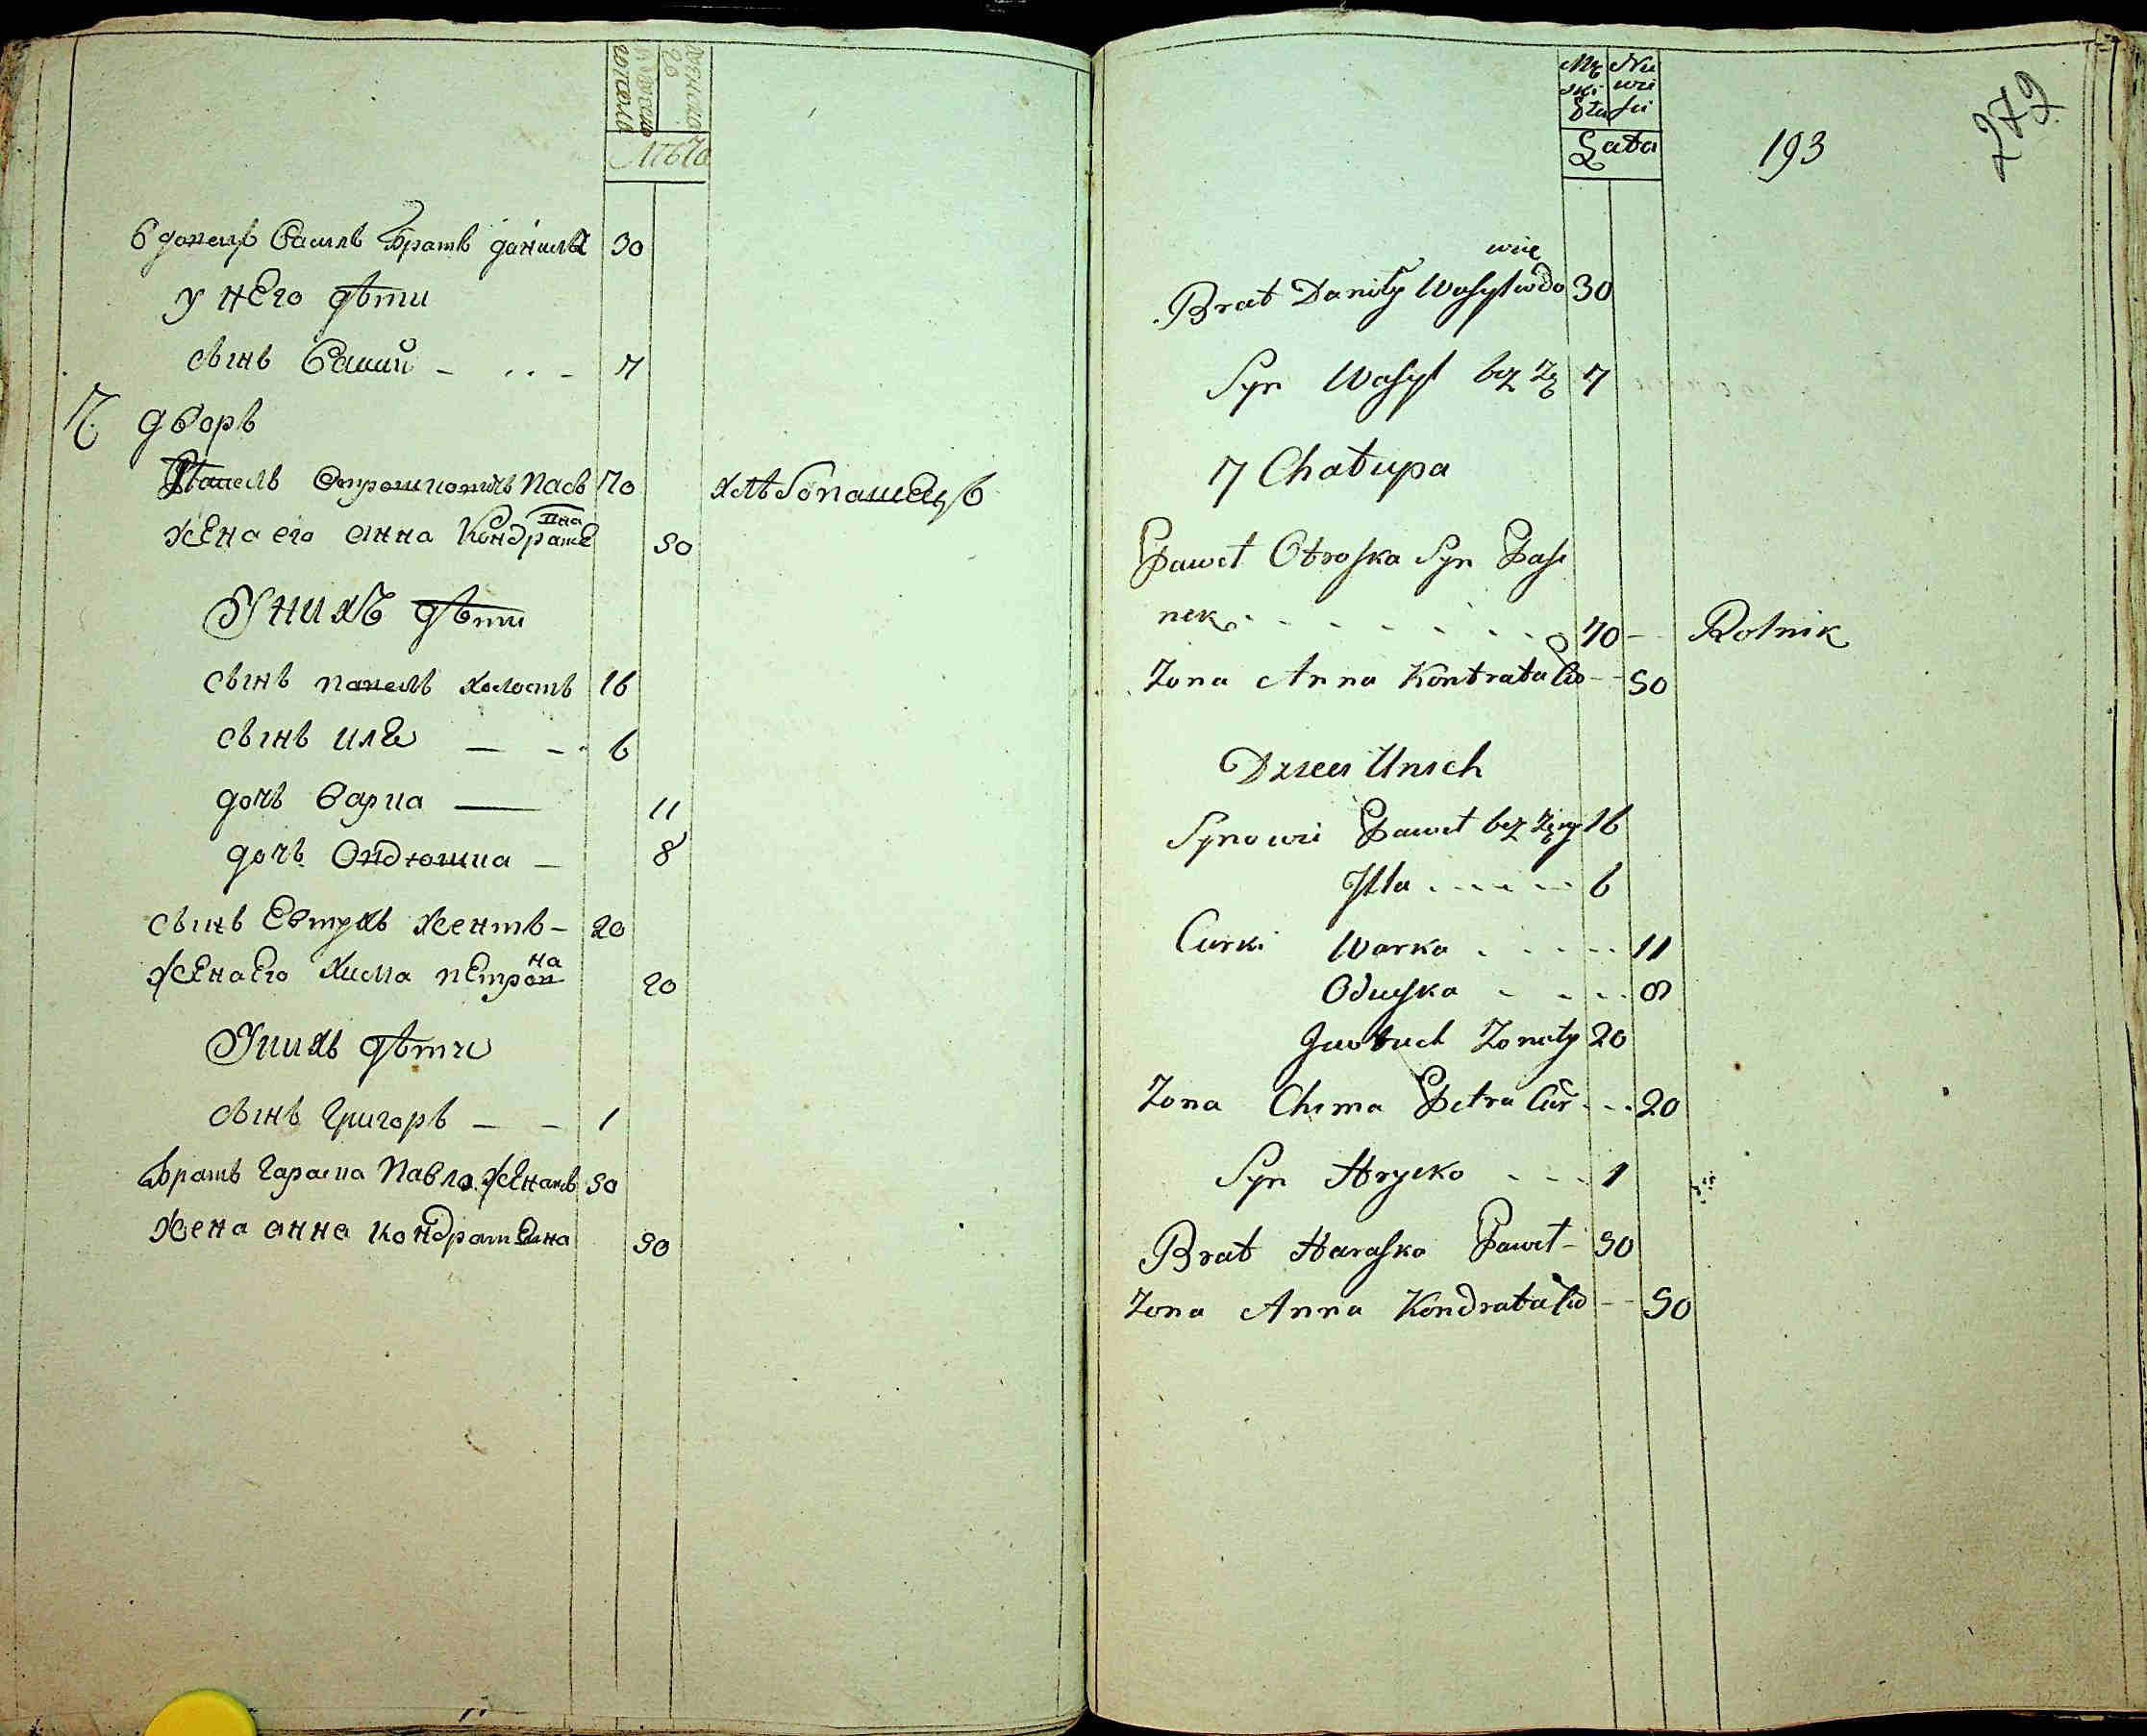 Лѣта
вдовецъ Василь братъ данила 30
у него дѣти
сынъ Василй - . . - 7
7. дворъ
Павелъ Отрошковичъ Пасѣ 70 хлѣбопашецъ
жена его анна Кондратевна 50
У нихъ дѣти
сынъ павелъ холостъ 16
сынъ иля — - 6
дочь варка — 11
дочь Ондюшка — 8
сынъ Евтухъ женатъ - 20
жена Его Хима пЕтрона 20
У нихъ дѣти
сынъ Григоръ — — 1
братъ гараска Павла женатъ 50
жена анна кондратЕвна 50
Mę Nie
ski wie
Stu ści
Lata
193
279
wiec
Brat Daniły Wasyl wdo 30
Syn Wasyl bez żę 7
7 Chałupa
Paweł Otroska Syn Pasi
nek . - - - - - - 70 - Rolnik
Zona Anna Kontrata Co - - 50
Dzieci U nich
Synowie Paweł bez żęny 16
Jlla . - - - - 6
Curki Warka . - - - 11
Oduska - - - . 8
Jwtuch Zonaty 20
Zona Chima Petra Cur . - . 20
Syn Hrycko - - - 1
Brat Haraska Paweł - 50
Zona Anna Kondrata Co - - 50